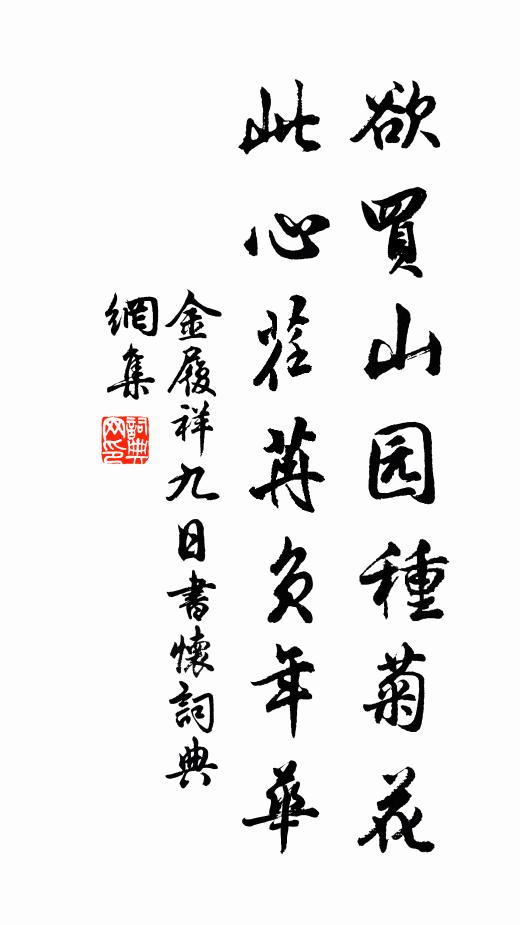 欲買山园種菊花
此心荏苒負年華
金履祥九日書懷詞典
網集
詞典网印